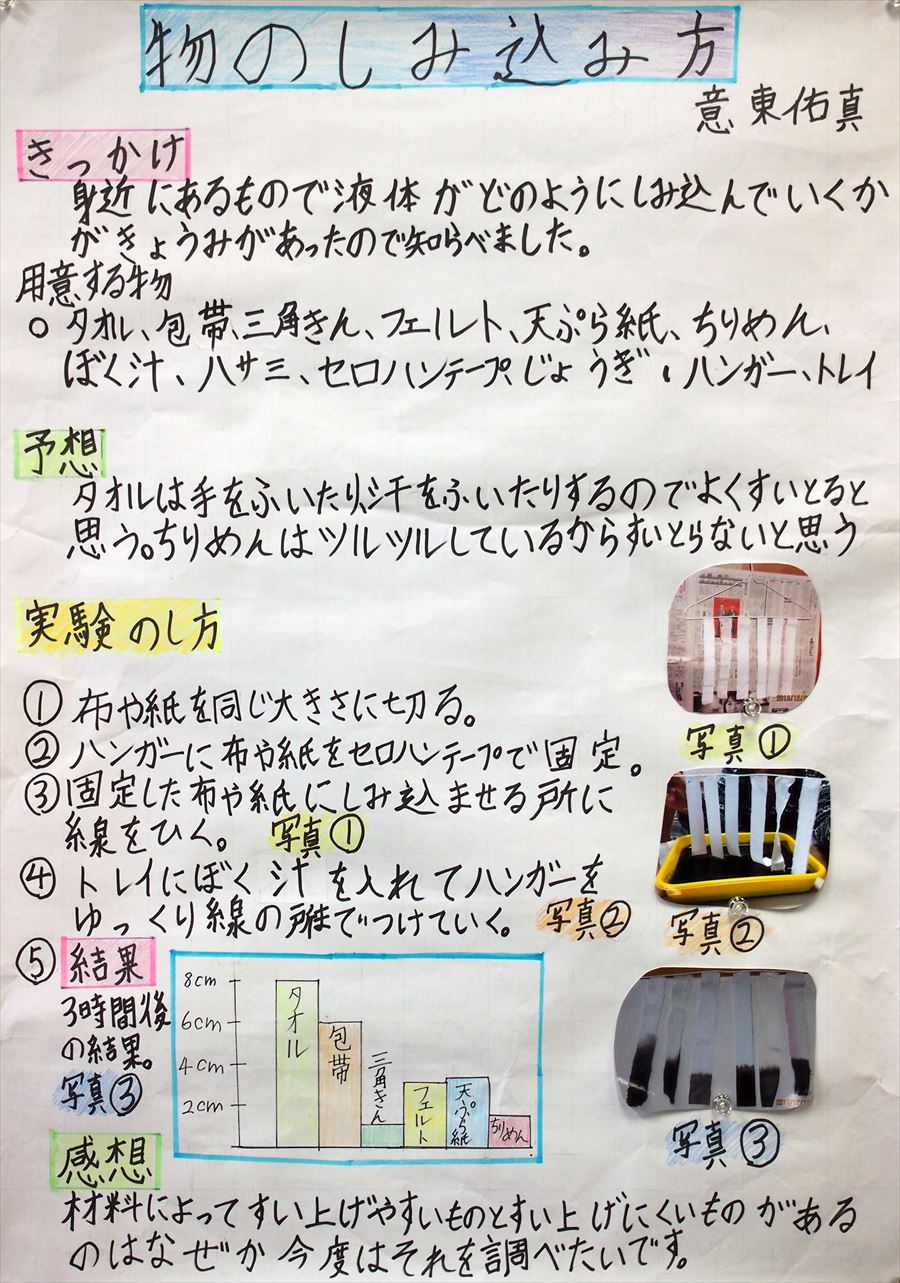 物のしみ込み方
意東佑真
きっかけ
身近にあるもので液体がどのようにしみ込んでいくか
がきょうみがあったので知らべました。
用意する物
○タオル、包帯、三角きん、フェルト、天ぷら紙、ちりめん、
ぼく汁、ハサミ、セロハンテープ、じょうぎ、ハンガー、トレイ
予想
タオルは手をふいたり、汗をふいたりするのでよくすいとると
思う。ちりめんはツルツルしているからすいとらないと思う
実験のし方
①布や紙を同じ大きさに切る。
②ハンガーに布や紙をセロハンテープで固定。
③固定した布や紙にしみ込ませる所に
線をひく。 写真①
④トレイにぼく汁を入れてハンガーを
ゆっくり線の所までつけていく。 写真②
写真①
写真②
写真③
⑤結果
3時間後
の結果。
写真③
8cm
6cm
4cm
2cm
タオル
包帯
三角きん
フェルト
天ぷら紙
ちりめん
感想
材料によってすい上げやすいものとすい上げにくいものがある
のはなぜか今度はそれを調べたいです。